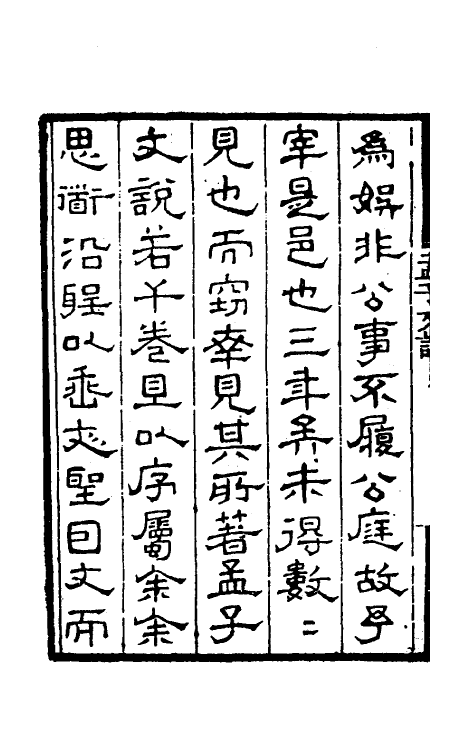 孟子文說
為娯非公事不履公庭故予
宰是邑也三年矣未得數〻
見也而窃幸見其所著孟子
文說若干卷且以序屬余余
思衜沿聖以垂聖囙文而